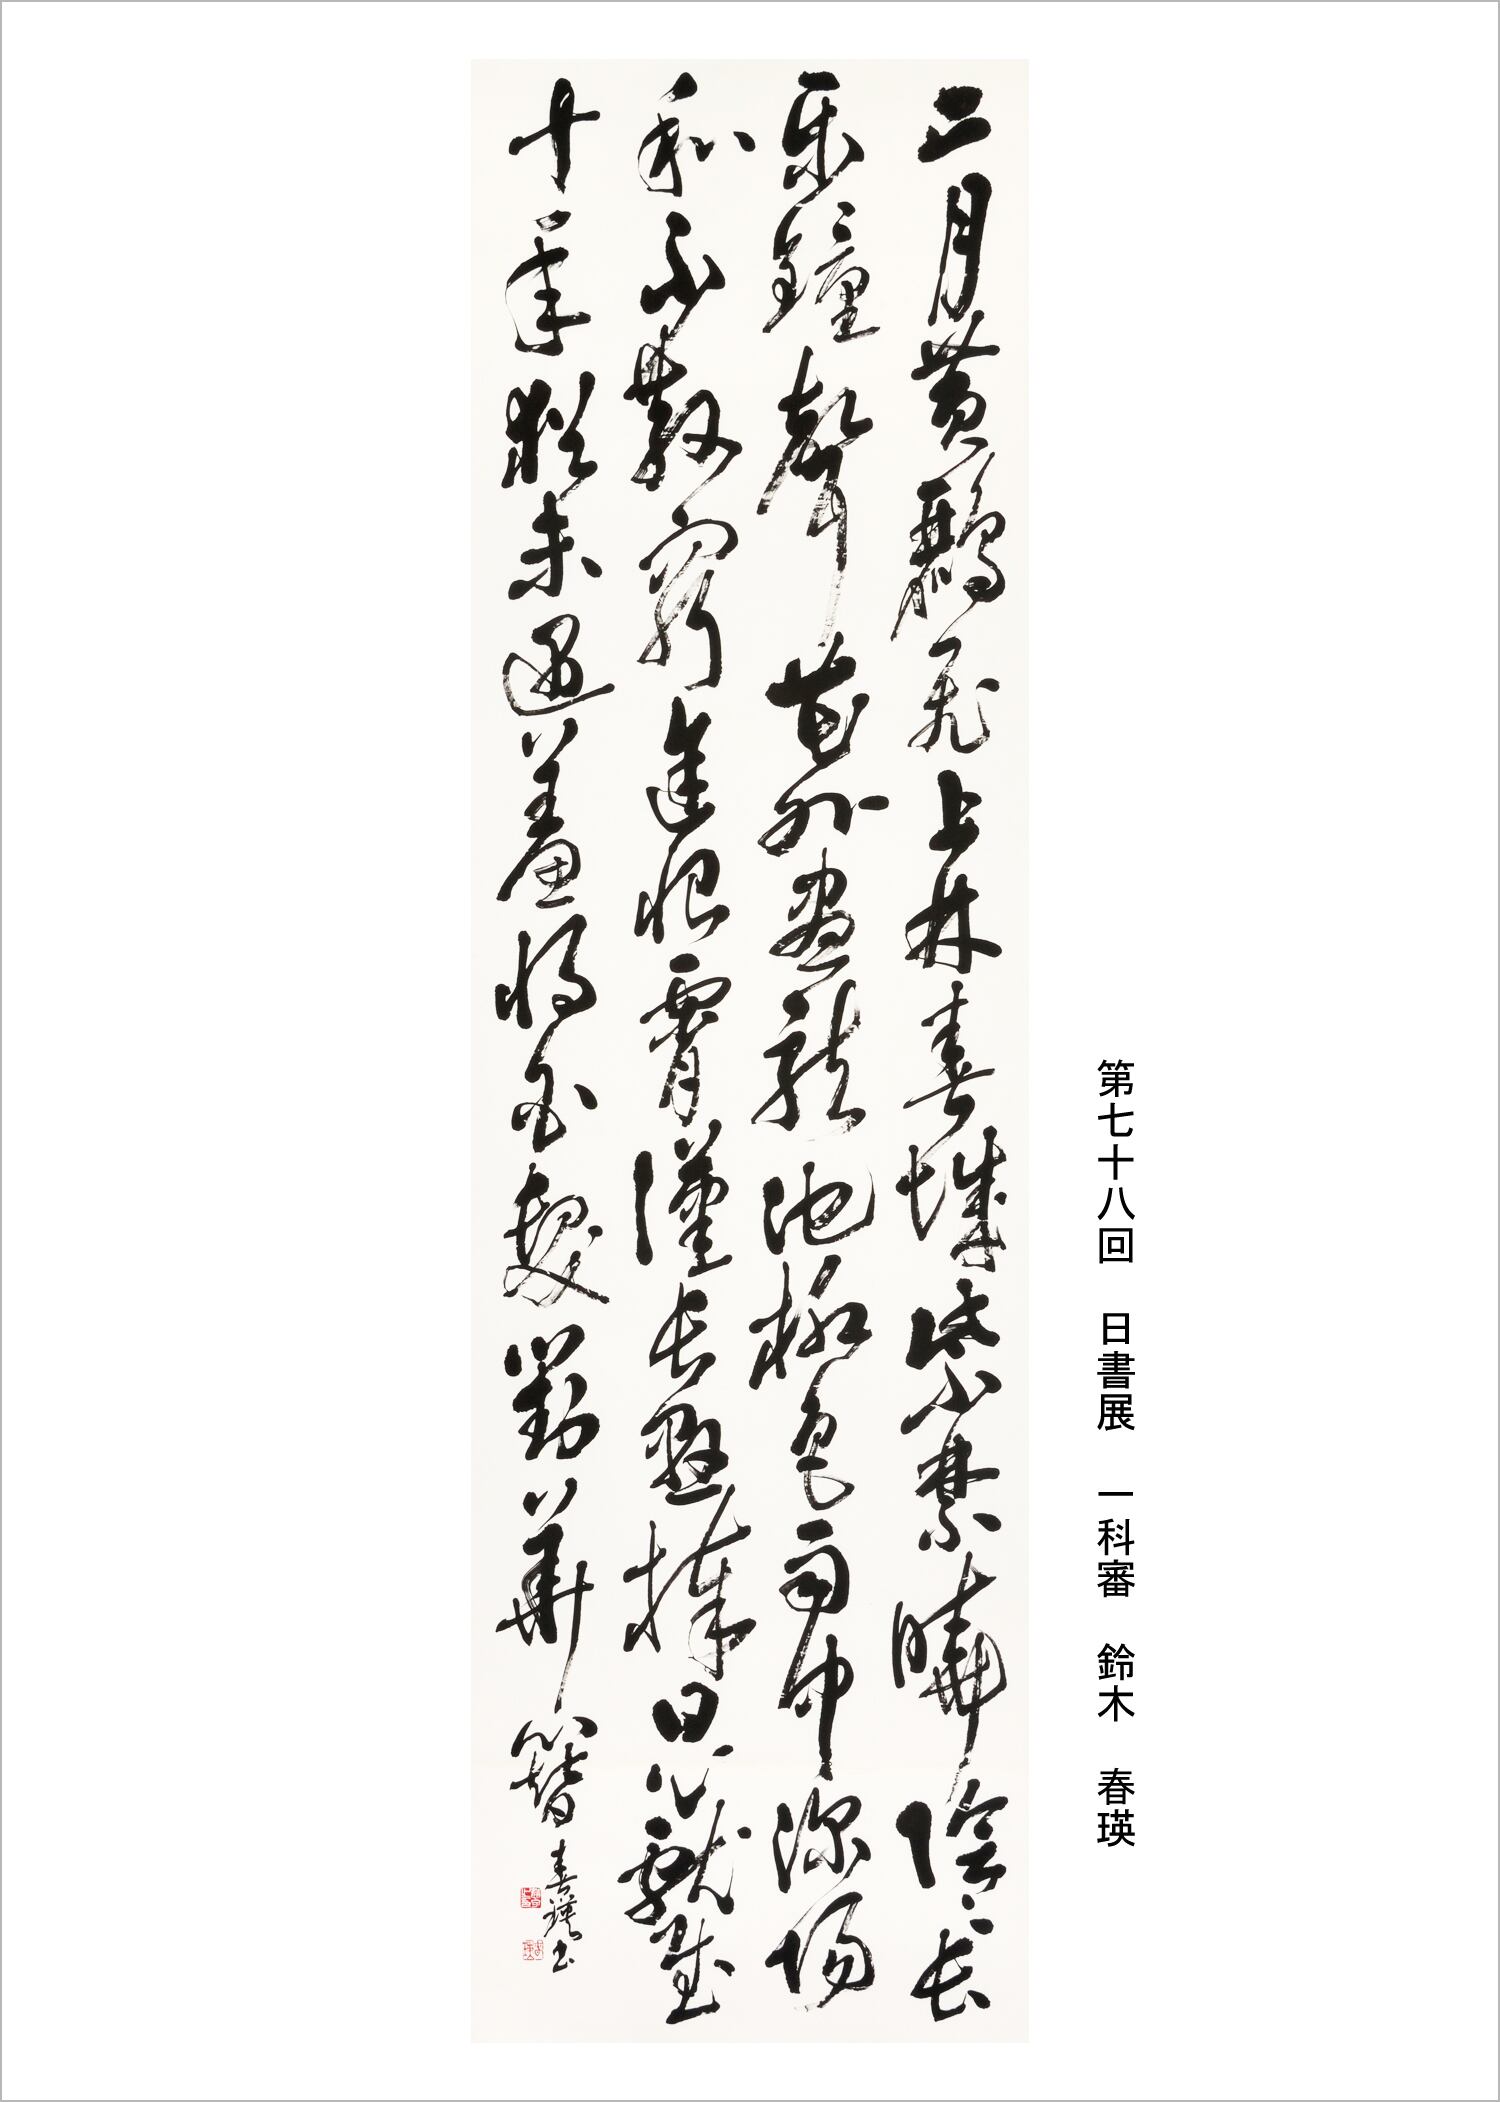 第七十八回 日書展 一科審 鈴木 春瑛
二月黃鸝飛上林春城紫禁曉陰〻長
樂鐘聲花外盡龍池柳色雨中深陽
和不散窮途恨霄漢長懸捧日心獻賦
十年猶未遇羞將白髮對華簪 春瑛書